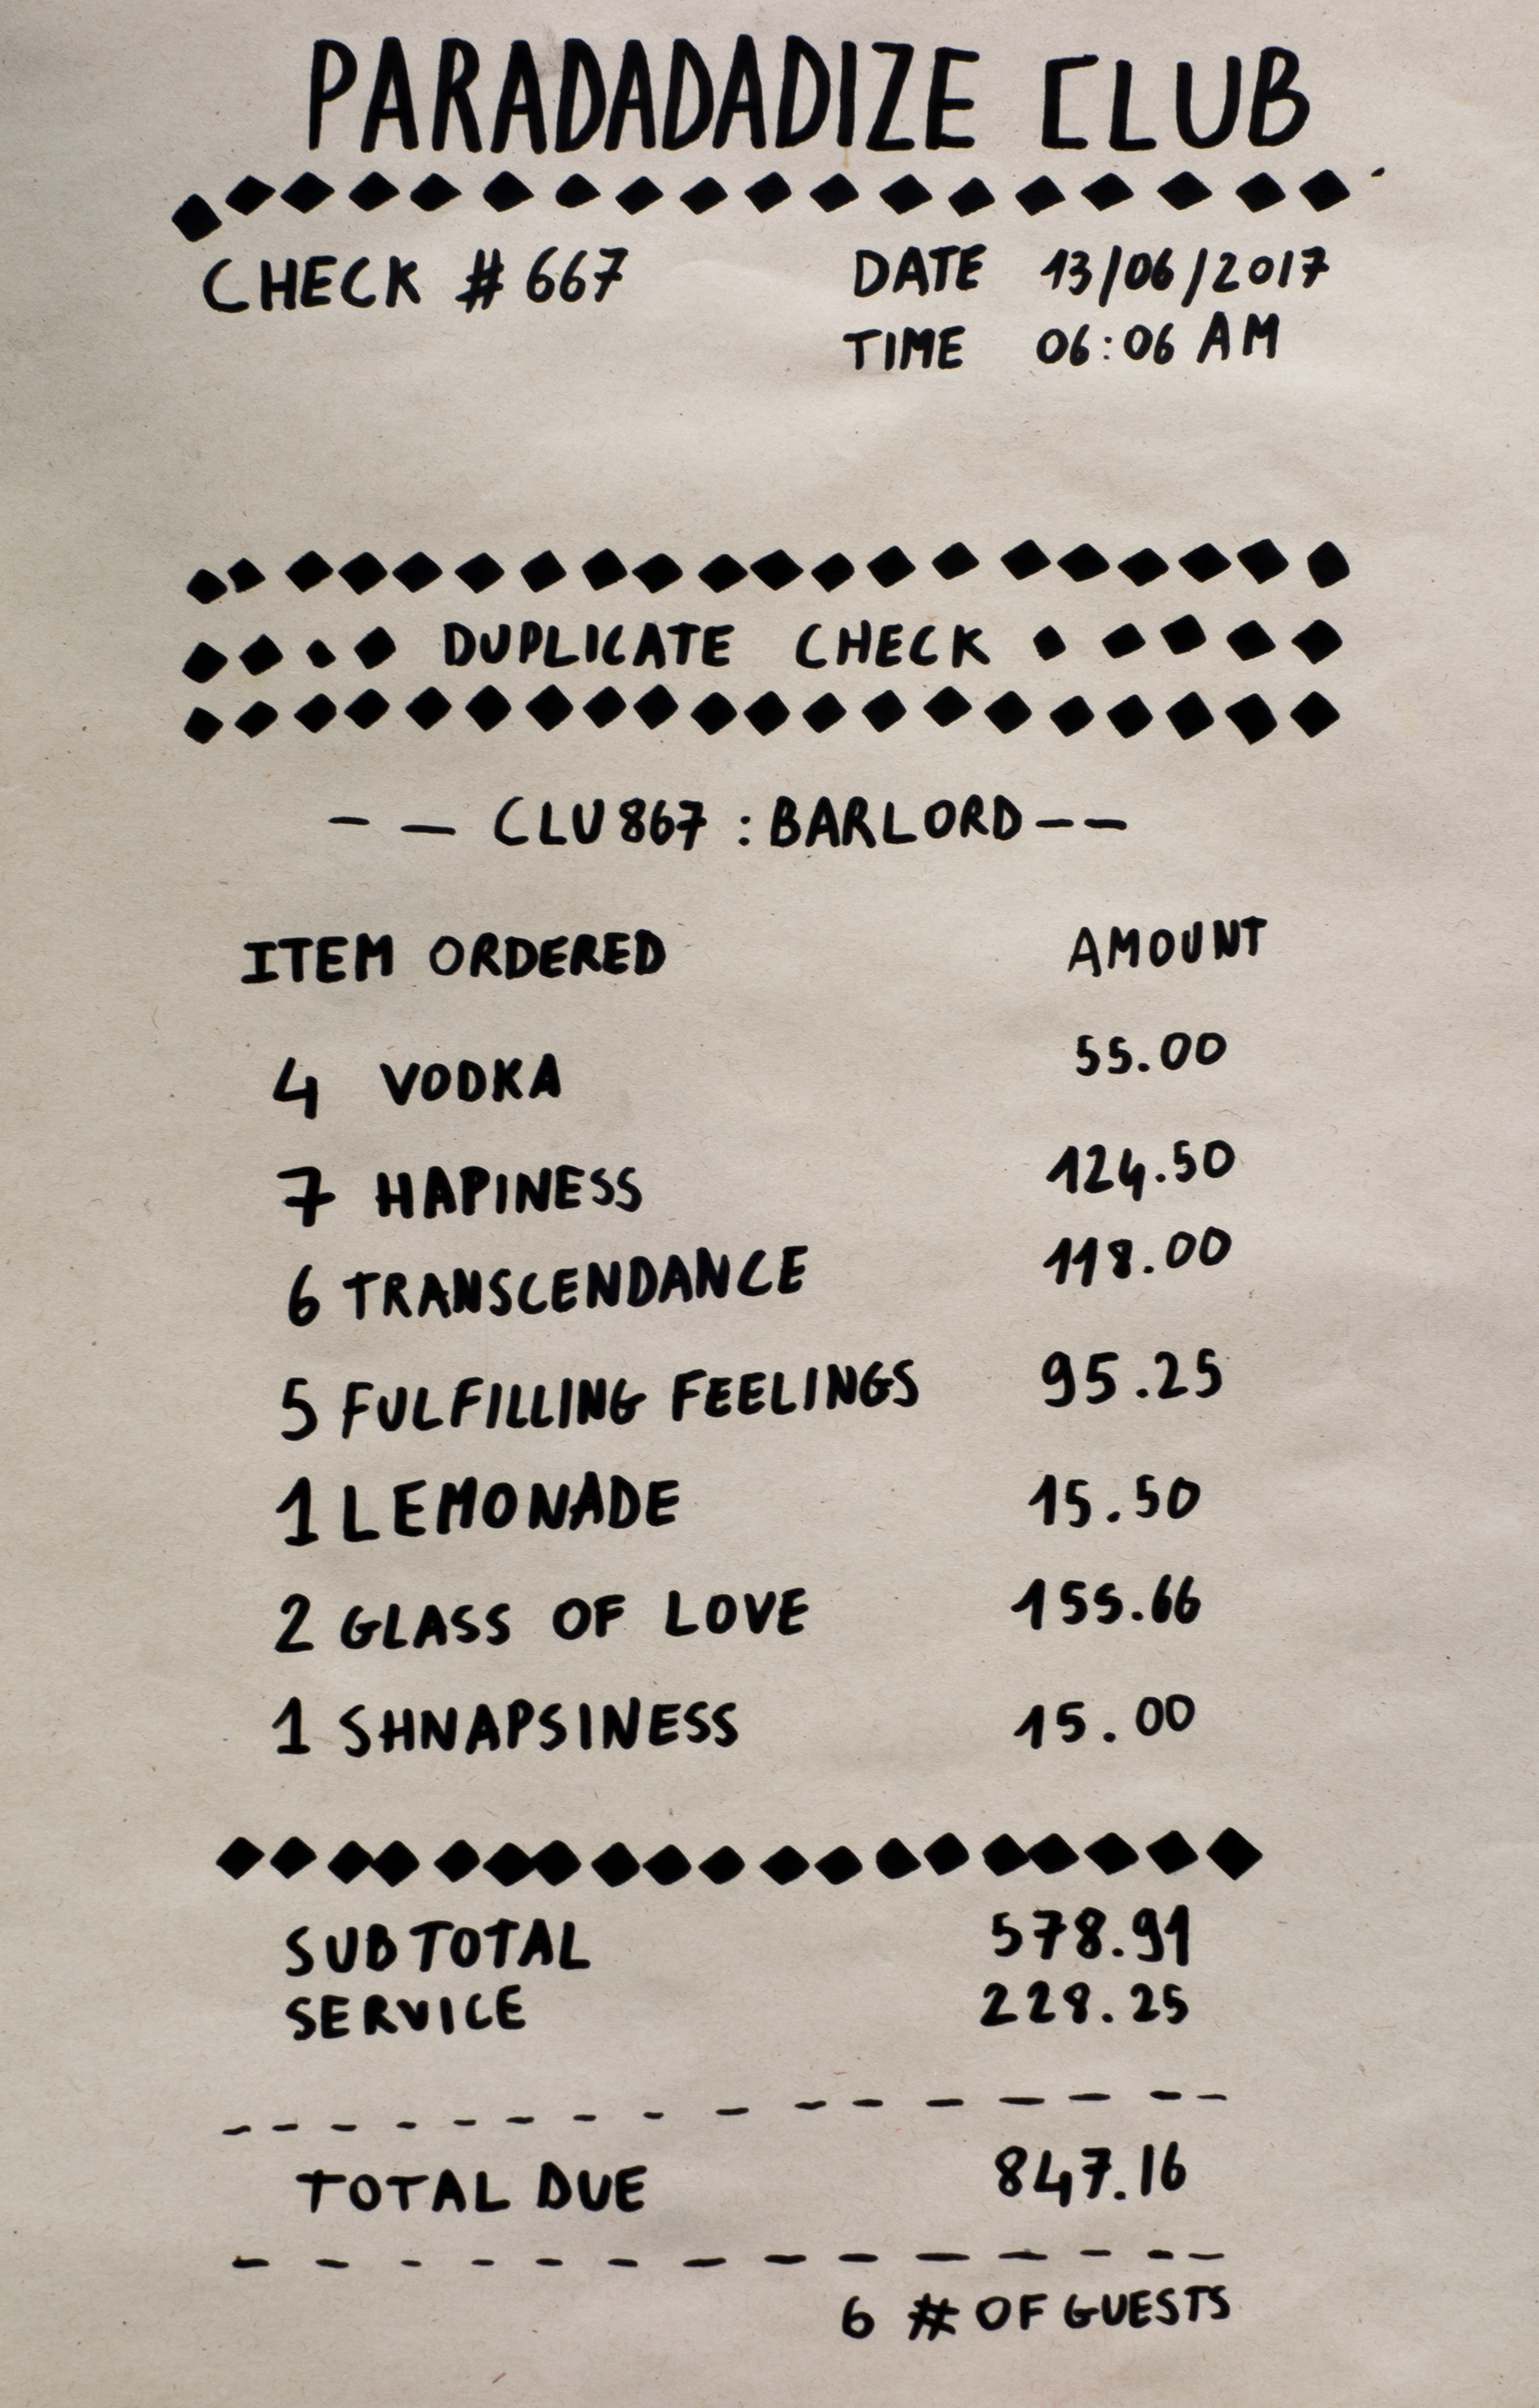 PARADADADIZE CLUB
CHECK #667 DATE 13/06/2017
TIME 06:06 AM
DUPLICATE CHECK
-- CLU867 : BARLORD --
ITEM ORDERED AMOUNT
4 VODKA 55.00
7 HAPINESS 124.50
6 TRANSCENDANCE 118.00
5 FULFILLING FEELINGS 95.25
1 LEMONADE 15.50
2 GLASS OF LOVE 155.66
1 SHNAPSINESS 15.00
SUBTOTAL 578.91
SERVICE 228.25
TOTAL DUE 847.16
6 # OF GUESTS